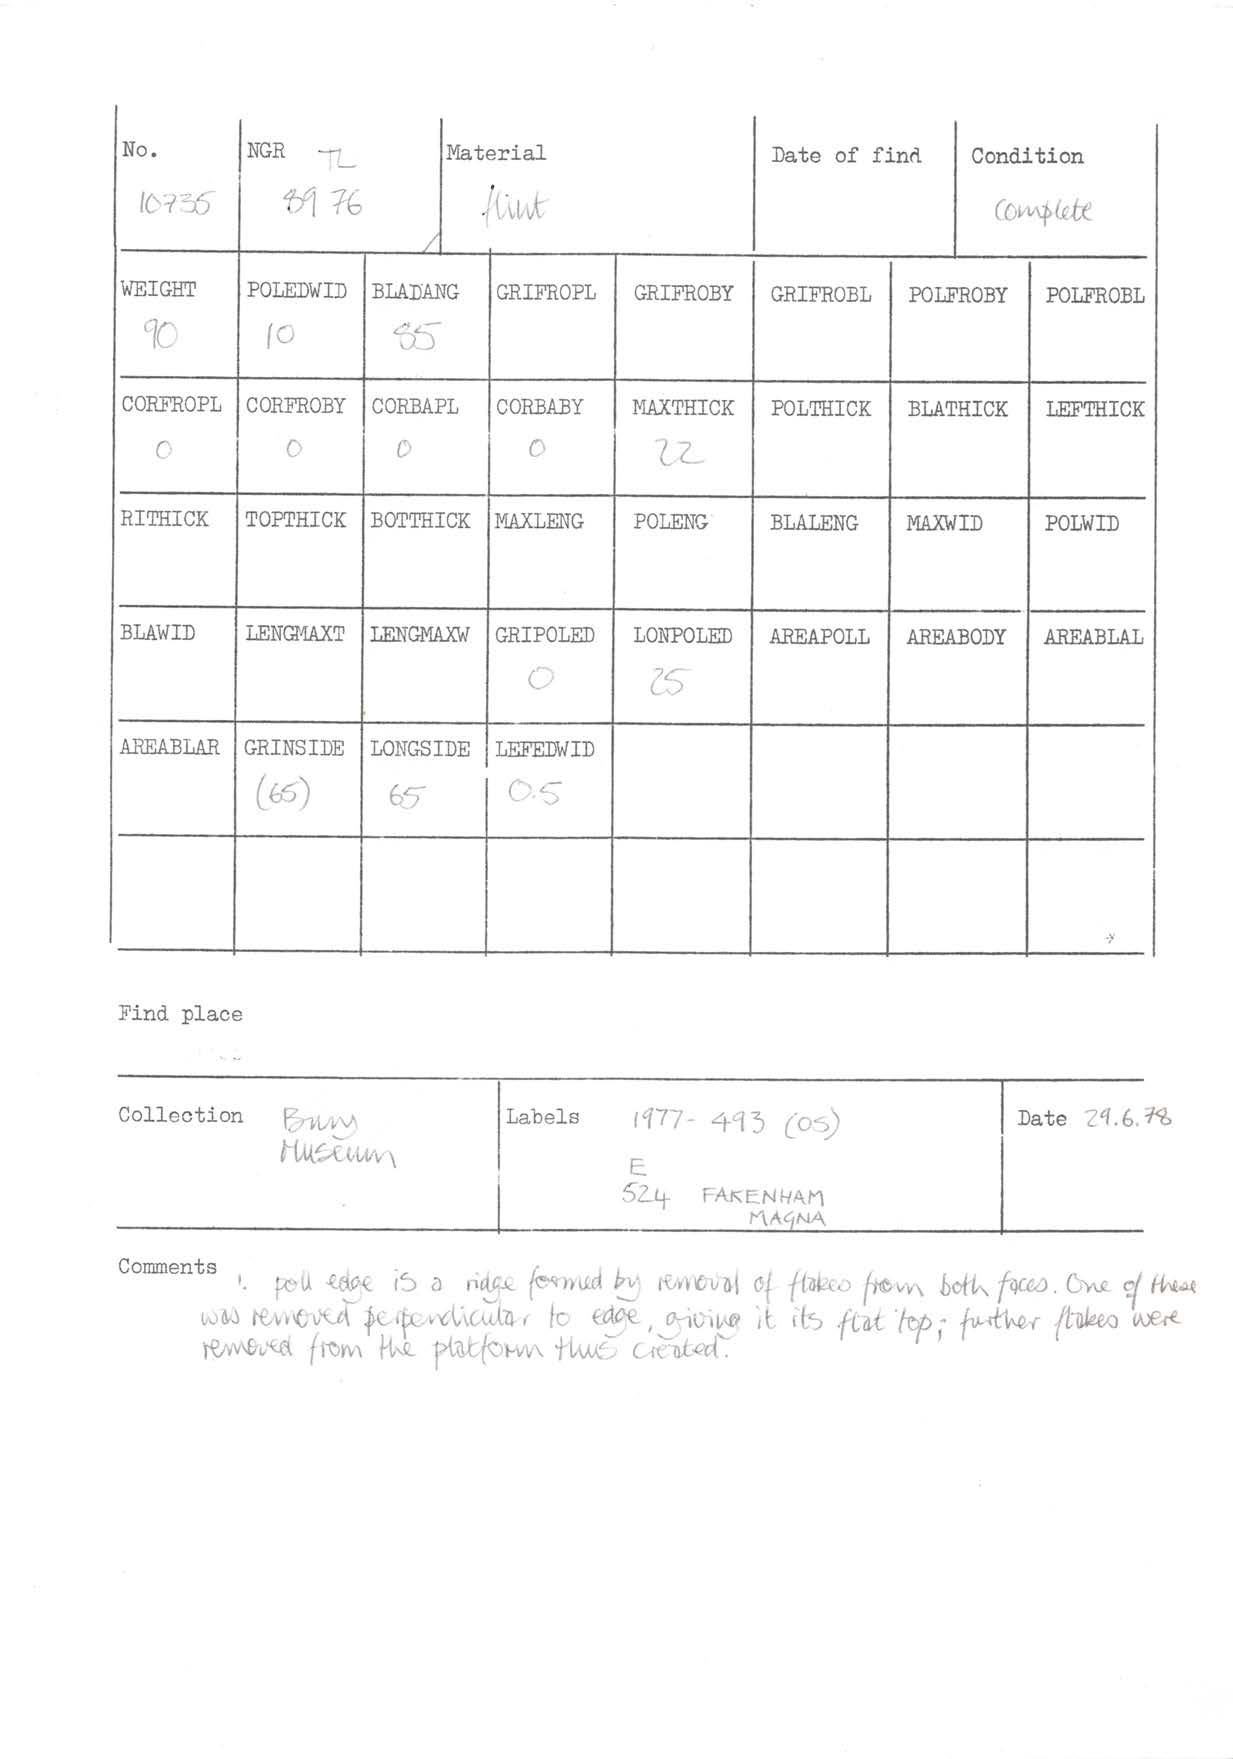 No. NGR TL Material Date of find Condition
10735 8976 flint complete
WEIGHT POLEDWID BLADANG GRIFROPL GRIFROBY GRIFROBL POLFROBY POLFROBL
90 10 85
CORFROPL CORFROBY CORBAPL CORBABY MAXTHICK POLTHICK BLATHICK LEFTHICK
0 0 0 0 22
RITHICK TOPTHICK BOTTHICK MAXLENG POLENG BLALENG MAXWID POLWID
BLAWID LENGMAXT LENGMAXW GRIPOLED LONPOLED AREAPOLL AREABODY AREABLAL
0 25
AREABLAR GRINSIDE LONGSIDE LEFEDWID
(65) 65 0.5
Find place
Collection Bury Labels 1977- 493 (OS) Date 29.6.78
Museum E
524 FAKENHAM
MAGNA
Comments 1. poll edge is a ridge formed by removal of flakes from both faces. One of these
was removed perpendicular to edge, giving it its flat top; further flakes were
removed from the platform thus created.